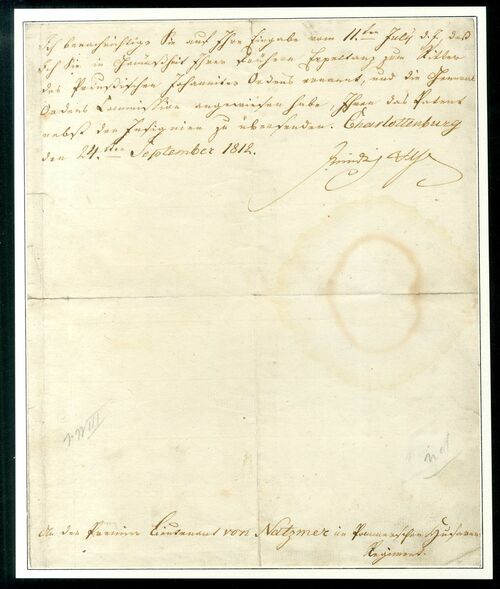 Ich benachrichtige Sie auf Ihre Eingabe vom 11ten July d. J. daß
Ich Sie in Gemäßheit Ihrer frühern Expectanz zum Ritter
des Preußischen Johanniter Ordens ernannt, und die General
Ordens Commission angewiesen habe Ihnen das Patent
nebst den Insignien zu übersenden. Charlottenburg
den 24ten September 1812.
An den Premier Lieutenant von Natzmer im Pommerschen Husaren
Regiment.